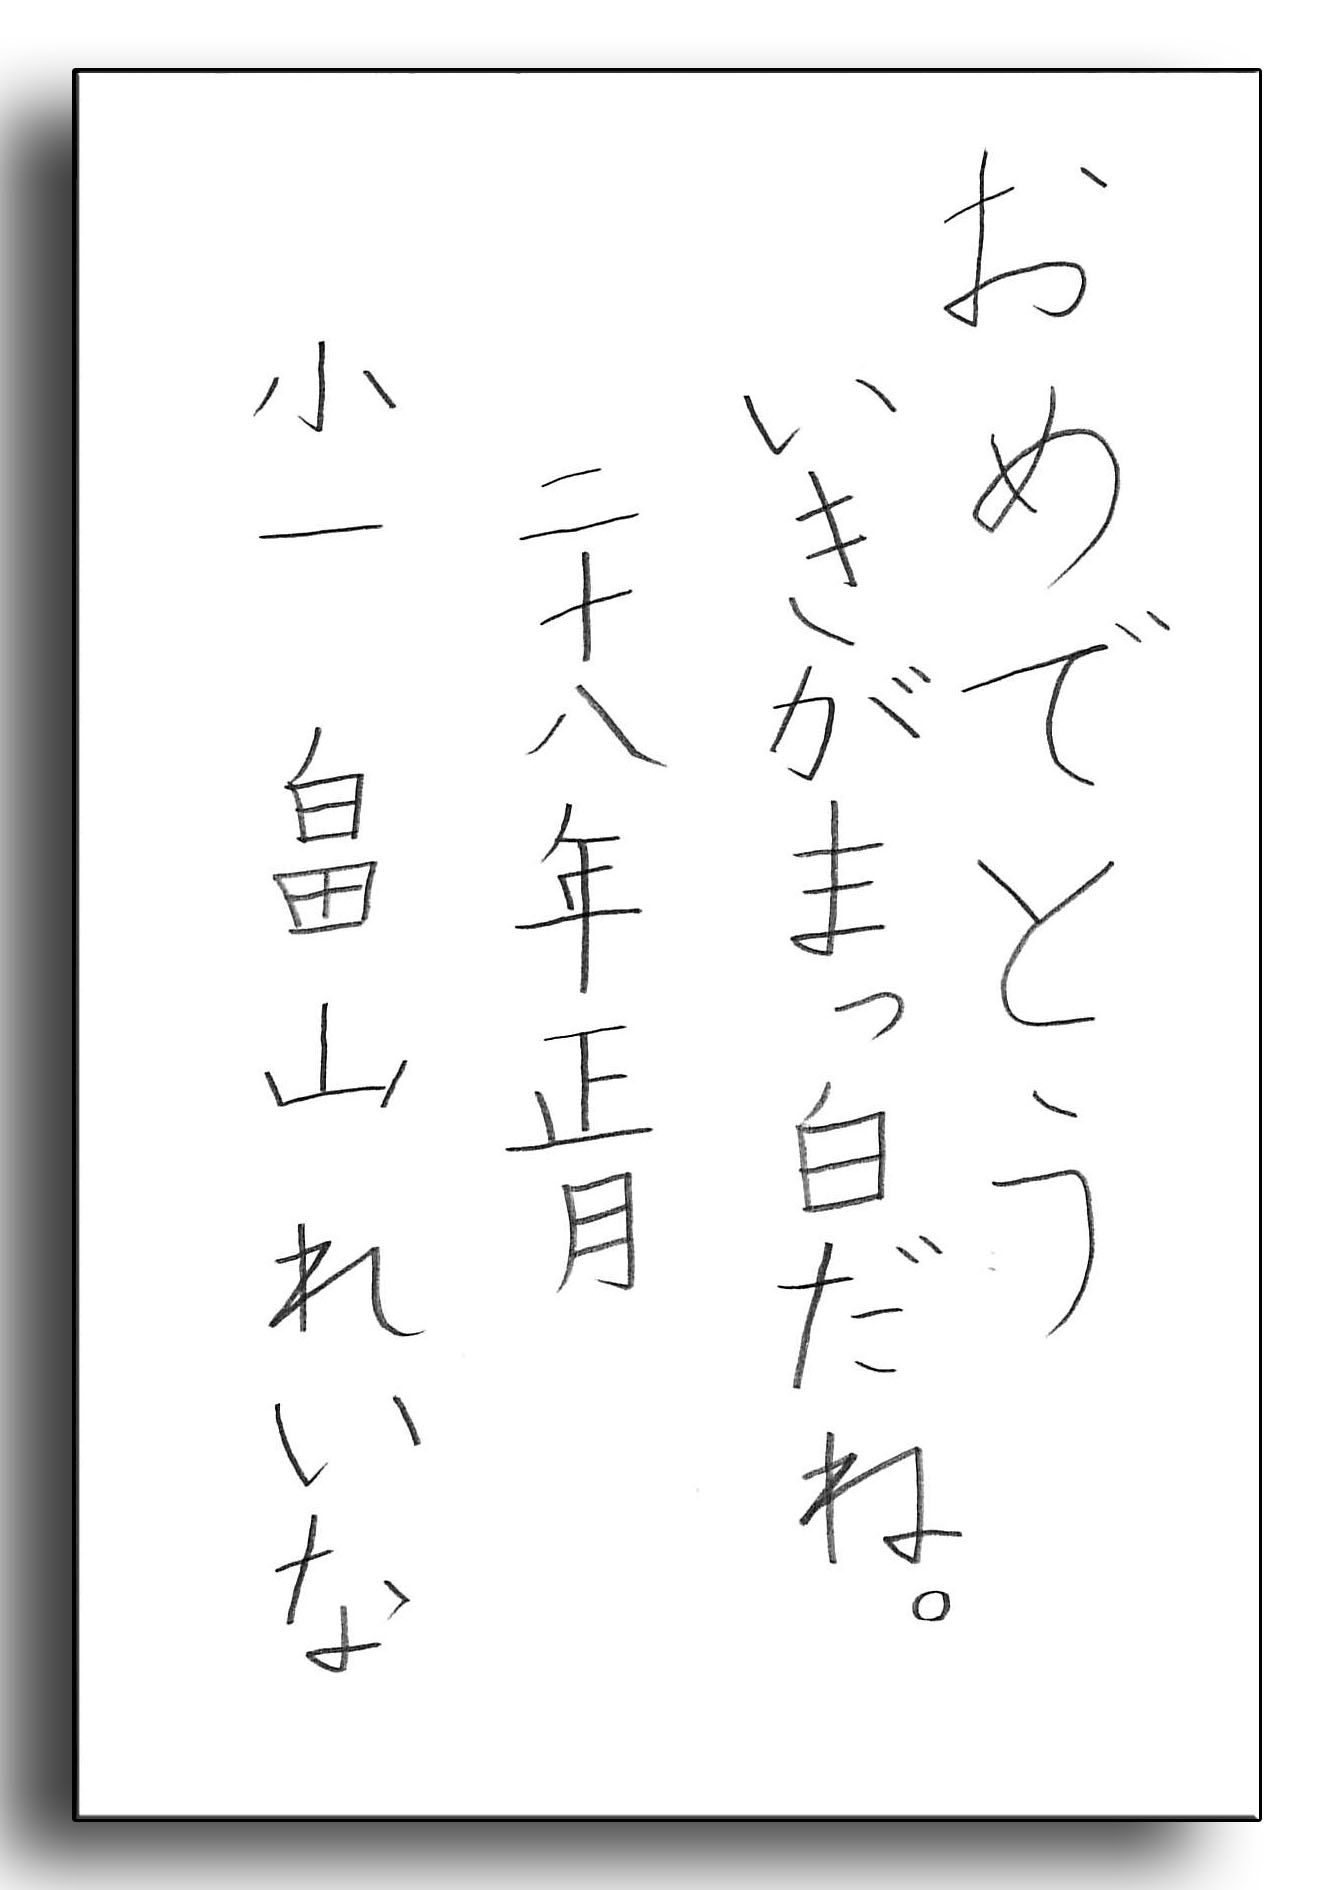 おめでとう
いきがまっ白だね。
二十八年正月
小一 畠山れいな